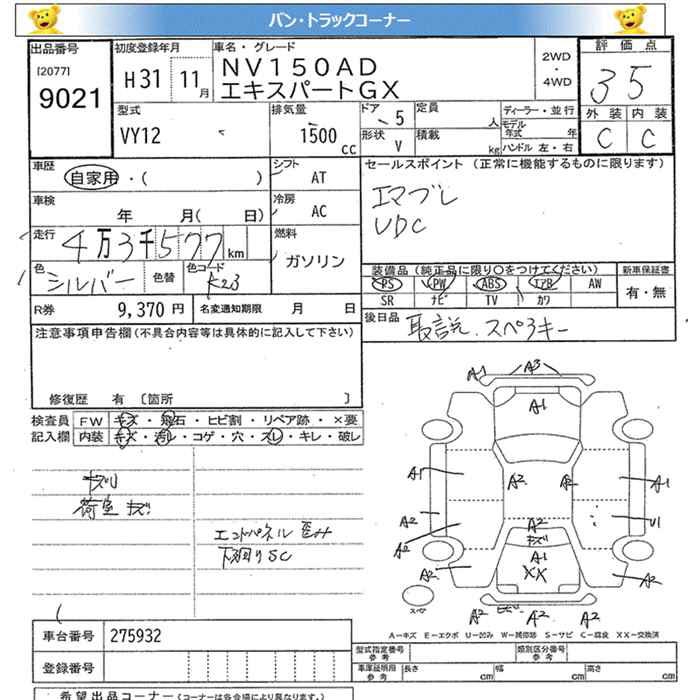 バン・トラックコーナー
出品番号
[2077]
9021
初度登録年月
H31 11月
車名・グレード
NV150AD
エキスパートGX
2WD
・
4WD
評価点
35
外装 内装
C C
型式
VY12
排気量
1500 cc
ドア 5
形状 V
定員 人
積載 kg
ディーラー・並行
モデル年式 年
ハンドル 左・右
車歴
自家用・( )
シフト
AT
セールスポイント (正常に機能するものに限ります)
エマブレ
VDC
車検
年 月( 日)
冷房
AC
走行
4万3千577km
燃料
ガソリン
色
シルバー
色替
色コード
K23
装備品 (純正品に限り〇をつけてください)
PS PW ABS エアB AW
SR ナビ TV カワ
新車保証書
有・無
R券 9,370円
名変通知期限 月 日
後日品
取説、スペアキー
注意事項申告欄(不具合内容等は具体的に記入して下さい)
修復歴 有 〔箇所 〕
検査員 FW キズ・飛石・ヒビ割・リペア跡・×要
記入欄 内装 キズ・汚レ・コゲ・穴・スレ・キレ・破レ
キズリ
荷室 キズ
エンドパネル 歪み
下廻りSC
A1 A3
A1
A1 A2 A2 A1
A2 A2 U1
A2 キズリ
A1
XX
A2 A2
スペア
A2 A2 A2
A=キズ E=エクボ U=凹み W=補修跡 S=サビ C=腐食 XX=交換済
車台番号 275932
登録番号
型式指定番号 参考
類別区分番号 参考
車庫証明用 参考
長さ cm
幅 cm
高さ cm
希望出品コーナー (コーナーは各会場により異なります。)